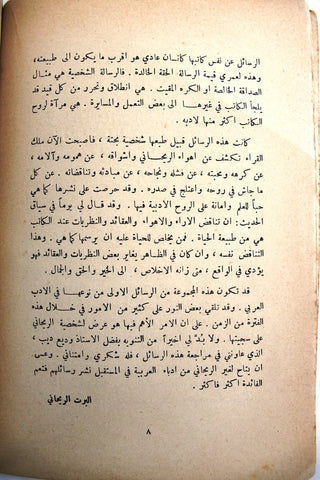 الرسائل عن نفس كاتبها كانسان عادي هو اقرب ما يكون الى طبيعته،
وهذه لعمري قيمة الرسالة الحقة الخالدة. فالرسالة الشخصية هي مثال
الصداقة الخالصة او الكره المقيت. هي انطلاق وتحرر من كل قيد قد
يلجأ الكاتب في غيرها الى بعض التعمل والمسايرة. هي مرآة لروح
الكاتب اكثر منها لادبه.
كانت هذه الرسائل قبيل طبعها شخصية بحتة، فاصبحت الآن ملك
القراء تكشف عن اهواء الريحاني واشواقه، عن همومه وآلامه،
عن كرهه ومحبته، عن فشله ونجاحه، عن مبادئه وتناقضاته. عن كل
ما جاش في روحه واعتلج في صدره. وقد حرصت على نشرها كما هي
حباً للعلم وامانة على الروح الادبية فيها. وقد قال لي يوماً في سياق
الحديث: ان تناقض الآراء والاهواء والعقائد والنظريات عند الكاتب
هي من طبيعة الحياة. فمن يخلص للحياة عليه ان يرسمها كما هي. وهذا
التناقض نفسه، وان كان في الظاهر يغاير بعض النظريات والعقائد فهو
يؤدي في الواقع، متى زانه الاخلاص، الى الخير والحق والجمال.
قد تكون هذه المجموعة من الرسائل الاولى من نوعها في الادب
العربي. وقد تلقي بعض النور على كثير من الامور في خلال هذه
الفترة من الزمن. على ان الامر الأهم فيها هو عرض لشخصية الريحاني
على سجيتها. ولا بُدَّ لي اخيراً من التنويه بفضل الاستاذ وديع ديب،
الذي عاونني في مراجعة هذه الرسائل، فله شكري وامتناني. وعسى
ان يتاح لغير الريحاني من ادباء العربية في المستقبل نشر رسائلهم فتعم
الفائدة اكثر فاكثر.
البرت الريحاني
٨